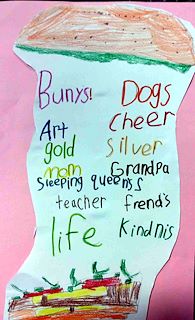 Bunys! Dogs
Art cheer
gold silver
mom Grandpa
Sleeping queens
teacher frends
life Kindnis